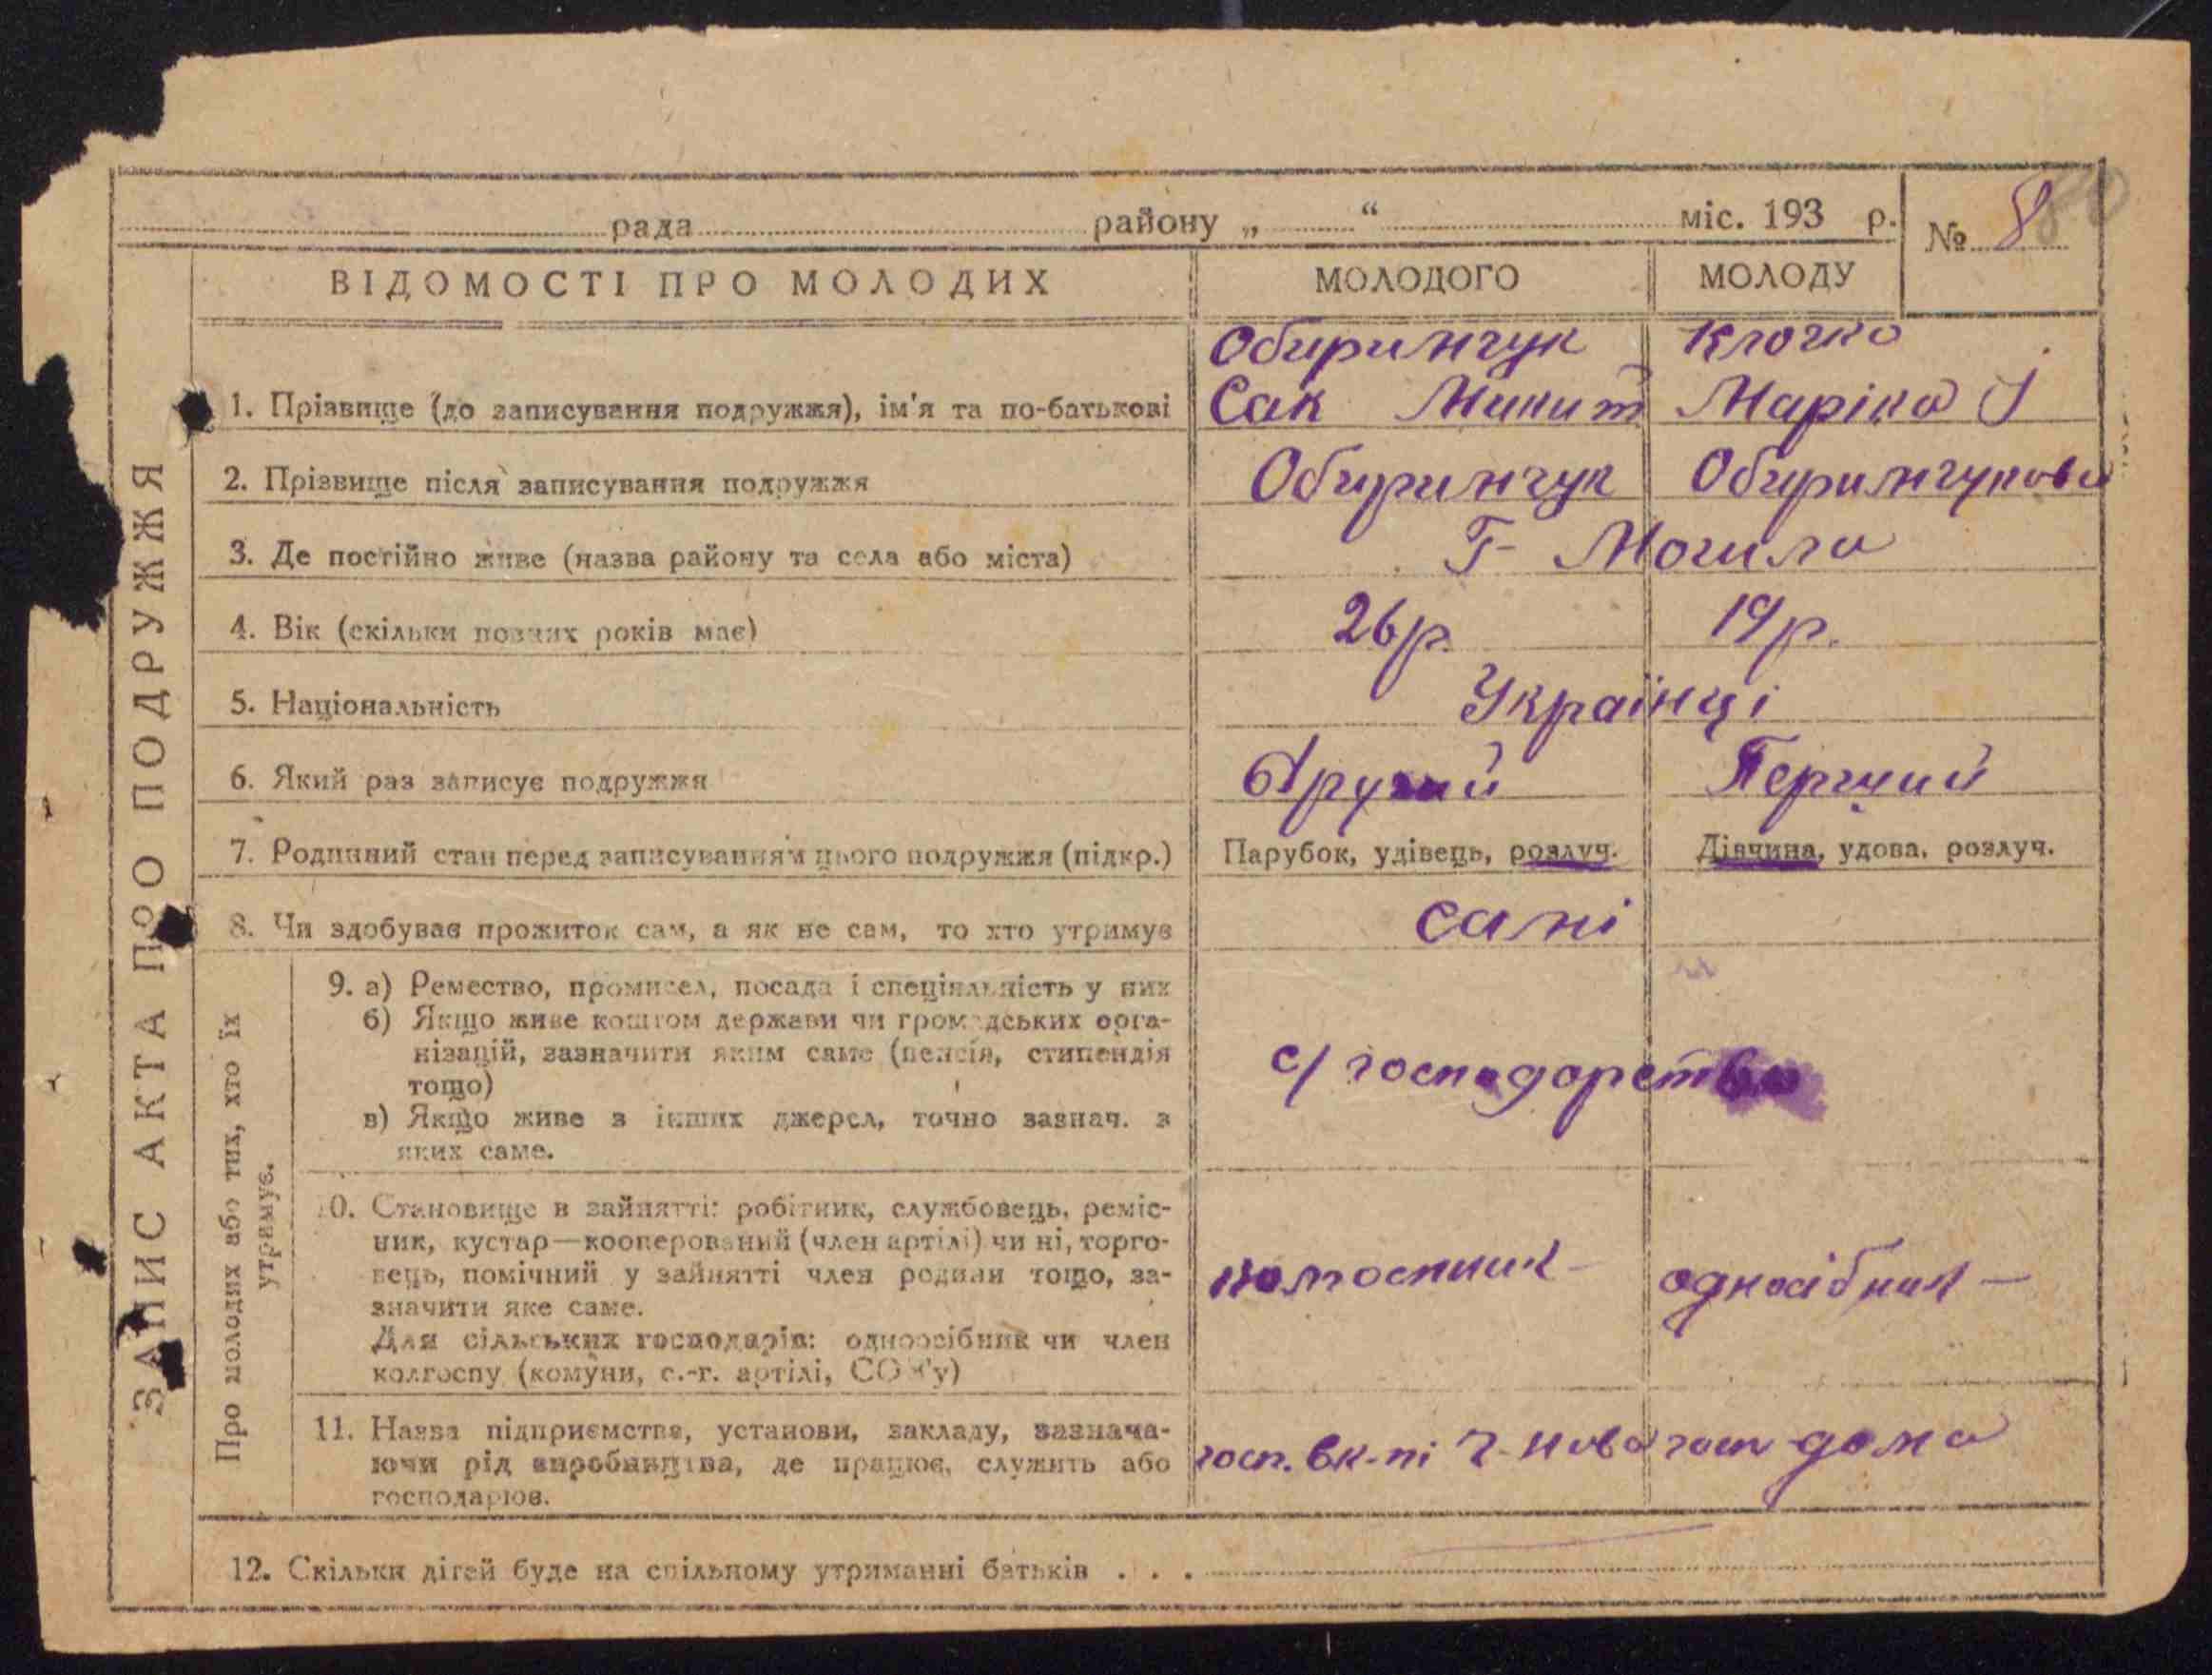 рада района „ “ міс. 193 р.
№ 8
80
ВІДОМОСТІ ПРО МОЛОДИХ
МОЛОДОГО
МОЛОДУ
1. Прізвище (до записування подружжя), ім'я та по-батькові
Обиримчук
Сак Микит
Клочко
Маріка І
2. Прізвище після записування подружжя
Обиримчук
Обиримчукова
3. Де постійно живе (назва району та села або міста)
Г- Могила
4. Вік (скільки повних років має)
26р.
19р.
5. Національність
Українці
6. Який раз записує подружжя
Другий
Перший
7. Родинний стан перед записуванням цього подружжя (підкр.)
Парубок, удівець, розлуч.
Дівчина, удова, розлуч.
8. Чи здобуває прожиток сам, а як не сам, то хто утримує
самі
9. а) Ремество, промисел, посада і спеціяльність у них
б) Якщо живе коштом держави чи громадських орга-
нізацій, зазначити яким саме (пенсія, стипендія
тощо)
в) Якщо живе з інших джерел, точно зазнач. з
яких саме.
с/господарство
10. Становище в зайнятті: робітник, службовець, реміс-
ник, кустар—кооперований (член артілі) чи ні, торго-
вець, помічний у зайнятті член родини тощо, за-
значити яке саме.
Для сільських господарів: одноосібник чи член
колгоспу (комуни, с.-г. артілі, СОЗу)
колгоспник -
односібник —
11. Назва підприємства, установи, закладу, зазнача-
ючи рід виробництва, де працює, служить або
господарює.
госп. вк-пі
дома
12. Скільки дітей буде на спільному утриманні батьків . . .
ЗАПИС АКТА ПРО ПОДРУЖЖЯ
Про молодих або тих, хто їх
утримує.